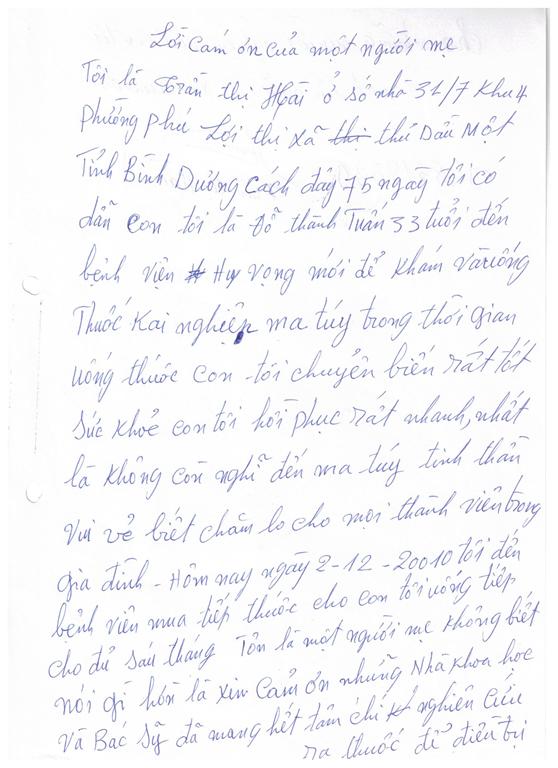 Lời cám ơn của một người mẹ
Tôi là Trần thị Hải ở số nhà 31/7 Khu 4
phường phú Lợi thị xã thị thủ Dầu Một
Tỉnh Bình Dương cách đây 75 ngày tôi có
dẫn con tôi là Đỗ thành Tuấn 33 tuổi đến
bệnh viện Huy vọng mới để Khám và uống
Thuốc Kai nghiện ma túy trong thời gian
uống thuốc con tôi chuyển biến rất tốt
sức khỏe con tôi hồi phục rất nhanh, nhất
là không còn nghĩ đến ma túy tinh thần
Vui vẻ biết chăm lo cho mọi thành viên trong
gia đình - Hôm nay ngày 2-12-20010 tôi đến
bệnh viên mua tiếp thuốc cho con tôi uống tiếp
cho đủ sáu tháng Tôn là một người mẹ không biết
nói gì hơn là xin Cảm ơn những Nhà Khoa học
và Bác Sỹ đã mang hết tâm chí nghiên cứu
ra thuốc để điều trị